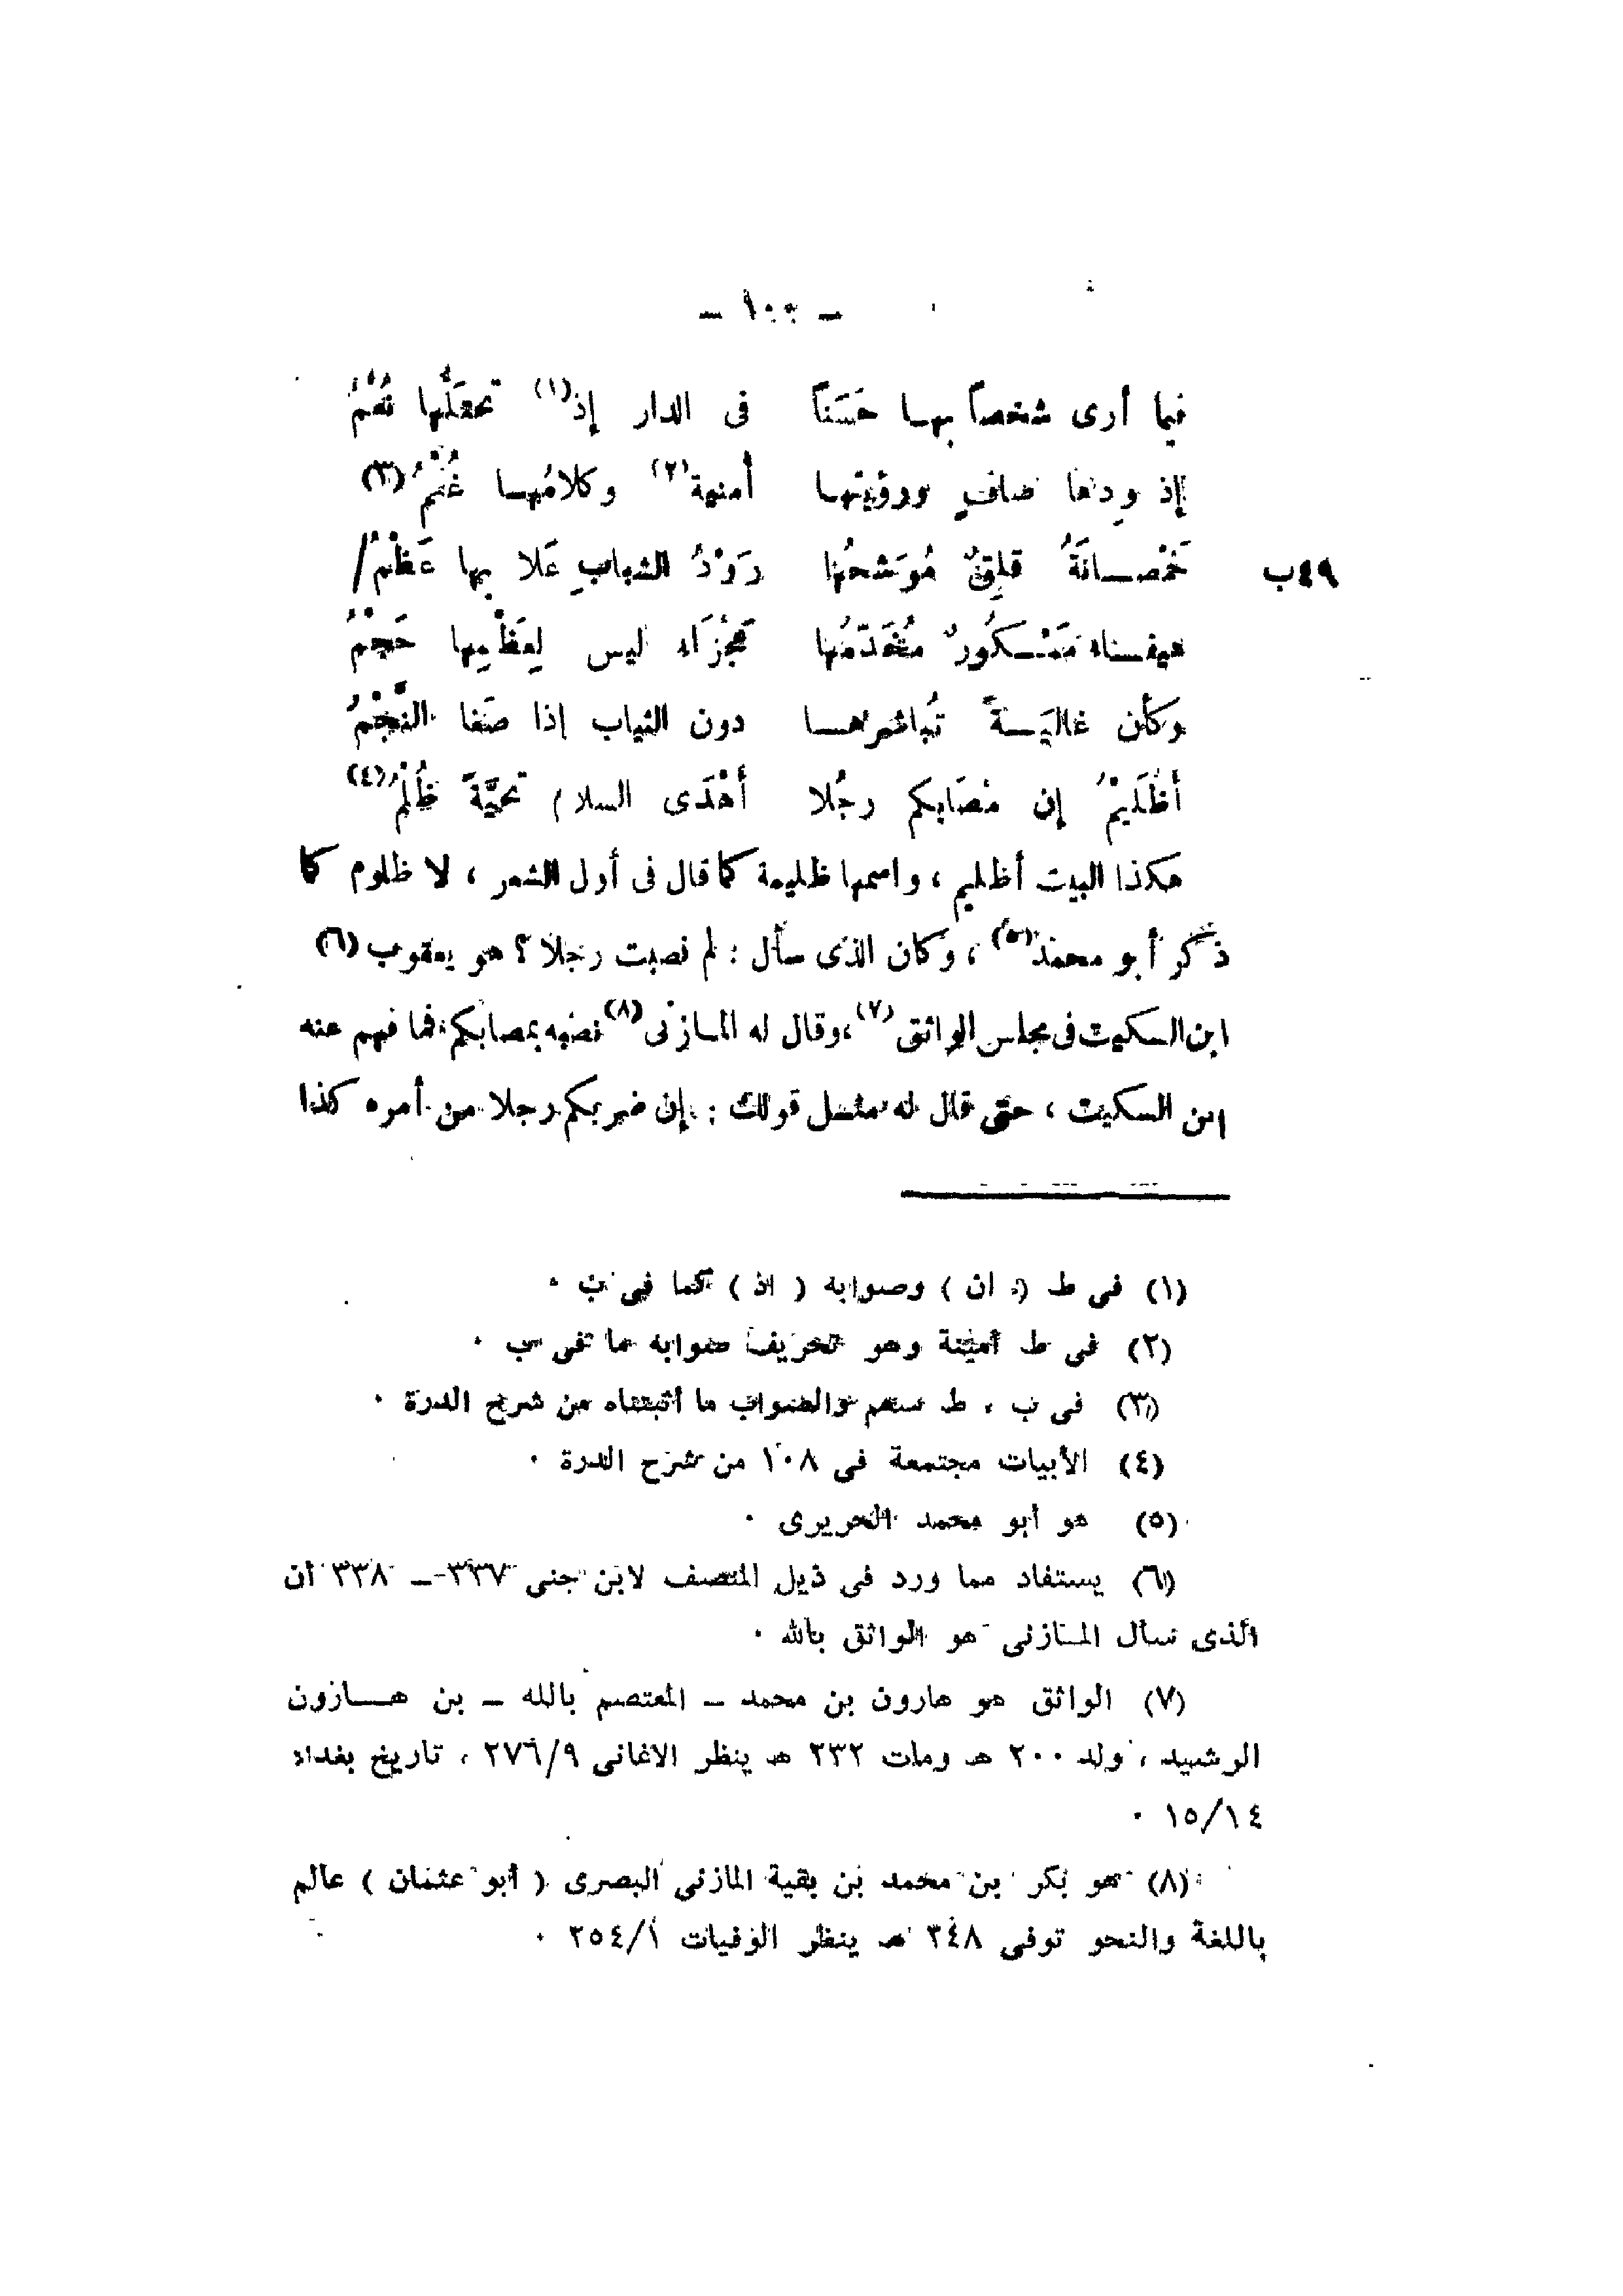 — ١٠٠ —
فيما أرى شخصاً بهـا حَسَناً فى الدار إذ(١) تحعَلُّها نُعْمُ
إذ ودها صافٍ ورؤيتهـا أمنية(٢) وكلامُهـا غُنْمُ(٣)
٤٩ب خَمْصـانَةُ قلِقٌ مُوَشحُها رَوْدُ الشبابِ عَلا بها عَظْمُ/
هيفـاء مَمْـكُورٌ مُخَدّمُها عَجْزَاء ليس لِعَظْمِها حَجْمُ
وكأن غاليَـةً تُباشرهـا دون الثياب إذا صَفا النَّجْمُ
أظَلَيْمُ إن مُصَابكم رجُلا أهْدَى السلام تحيَّةً ظُلْمُ(٤)
هكذا البيت أظليم ، واسمها ظليمة كما قال فى أول الشعر ، لا ظلوم كما
ذكر أبو محمد(٥) ، وكان الذى سأل : لم نصبت رجلا ؟ هو يعقوب (٦)
ابن السكيت فى مجلس الواثق(٧)، وقال له المـازنى(٨) نصبه بمصابكم، فما فهم عنه
ابن السكيت ، حتى قال له مثـل قولك : إن ضربكم رجلا من أمره كذا
(١) فى ط ( ان ) وصوابه ( اذ ) كما فى ب ٠
(٢) فى ط أمينة وهو تحريف صوابه ما فى ب ٠
(٣) فى ب ، ط سهم والصواب ما أثبتناه من شرح الدرة ٠
(٤) الأبيات مجتمعة فى ١٠٨ من شرح الدرة ٠
(٥) هو أبو محمد الحريرى ٠
(٦) يستفاد مما ورد فى ذيل المنصف لابن جنى ٣٣٧ — ٣٣٨ أن
الذى سأل المـازنى هو الواثق بالله ٠
(٧) الواثق هو هارون بن محمد — المعتصم بالله — بن هـــارون
الرشيد ، ولد ٢٠٠ هـ ومات ٢٣٢ هـ ينظر الاغانى ٢٧٦/٩ ، تاريخ بغداد
١٥/١٤ ٠
(٨) هو بكر بن محمد بن بقية المازنى البصرى ( أبو عثمان ) عالم
باللغة والنحو توفى ٢٤٨ هـ ينظر الوفيات ٢٥٤/١ ٠